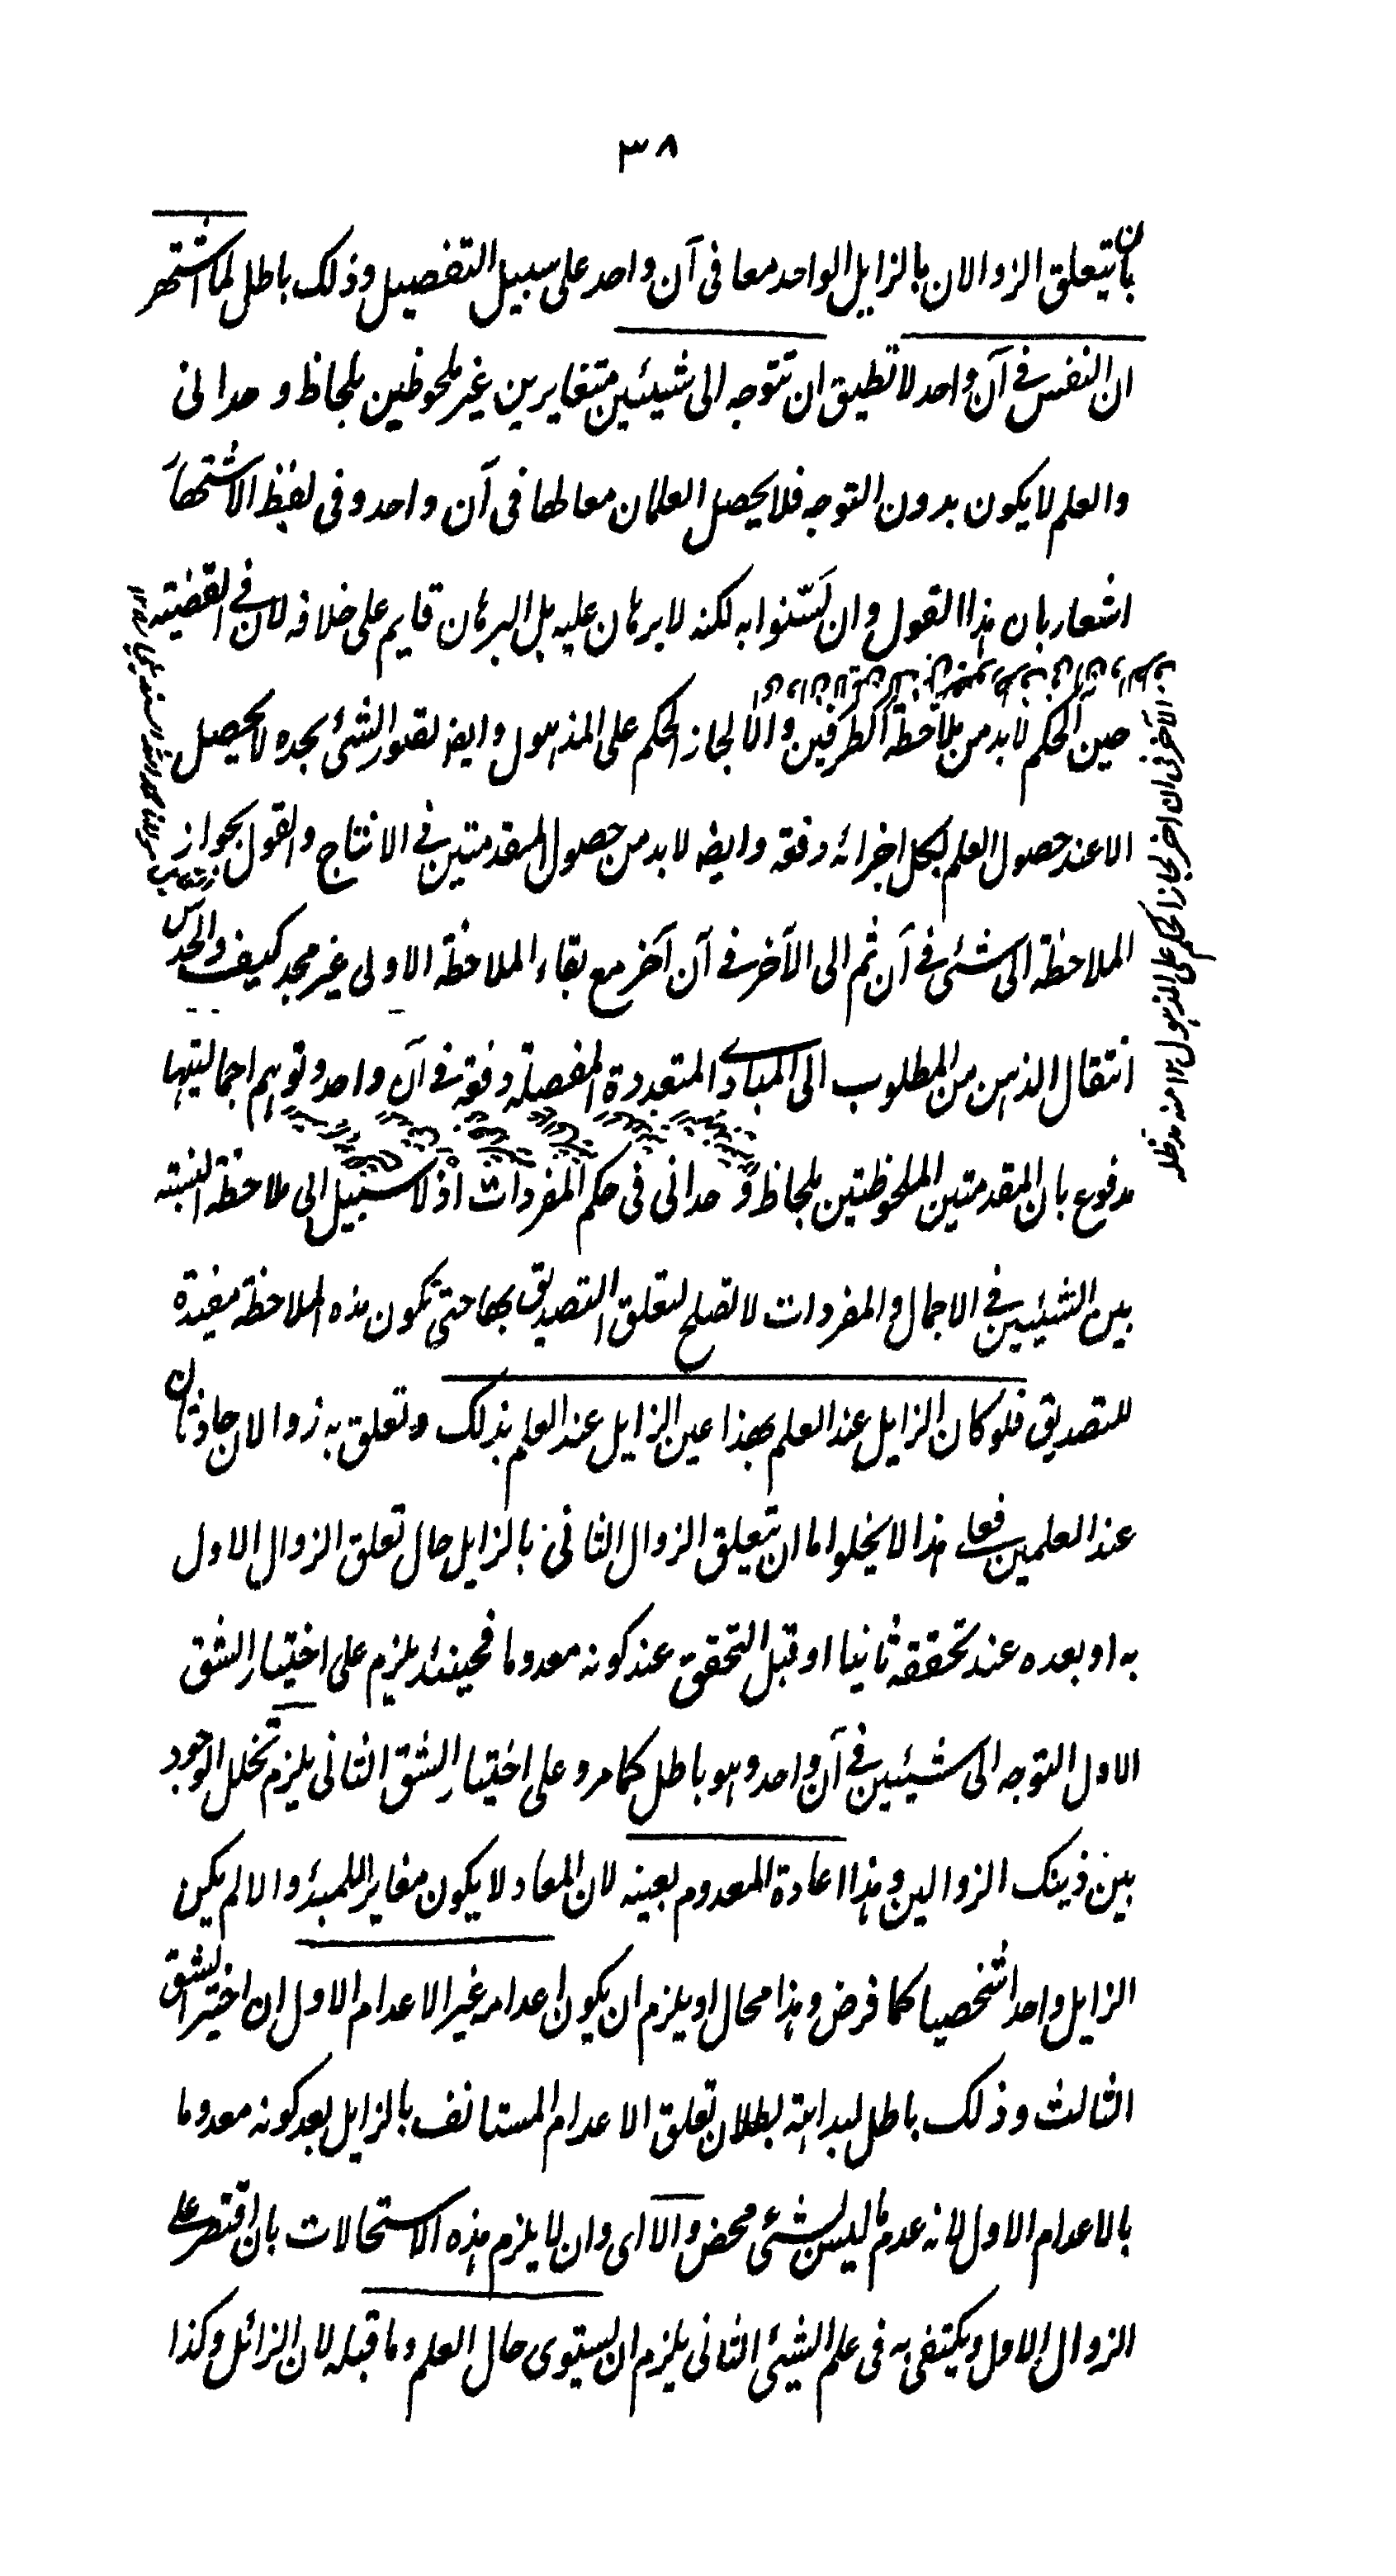 ٣٨
بان يتعلق الزوالان بالزايل الواحد معا فى آن واحد على سبيل التفصيل وذلك باطل لما اشتهر
ان النفس فى آن واحد لا تطيق ان تتوجه الى شيئين متغايرين غير ملحوظين بلحاظ وحدانى
والعلم لا يكون بدون التوجه فلا يحصل العلمان معا لها فى آن واحد وفى لفظ الاشتهار
اشعار بان هذا القول وان تسننوا به لكنه لا برهان عليه بل البرهان قايم على خلافه لان فى القضيته
حين الحكم لا بد من ملاحظة الطرفين والا لجاز الحكم على المذهول وايضا تصور الشئ بحده لا يحصل
الا عند حصول العلم بكل اجزائه دفعة وايضا لا بد من حصول المقدمتين فى الانتاج والقول بجواز
الملاحظة الى شئ فى آن ثم الى الآخر فى آن آخر مع بقاء الملاحظة الاولى غير مجد كيف والحدس
انتقال الذهن من المطلوب الى المبادى المتعددة المفصلة دفعة فى آن واحد وتوهم اجماليتها
مدفوع بان المقدمتين الملحوظتين بلحاظ وحدانى فى حكم المفردات اذ لا سبيل الى ملاحظة النسبته
بين الشيئين فى الاجمال والمفردات لا تصلح لتعلق التصديق بها حتى تكون هذه الملاحظة مفيدة
للتصديق فلو كان الزايل عند العلم بهذا عين الزايل عند العلم بذلك وتعلق به زوالان حادثان
عند العلمين فعلى هذا لا يخلوا اما ان يتعلق الزوال الثانى بالزايل حال تعلق الزوال الاول
به او بعده عند تحققه ثانيا او قبل التحقق عند كونه معدوما فحينئذ يلزم على اختيار الشق
الاول التوجه الى شيئين فى آن واحد وهو باطل كما مر وعلى اختيار الشق الثانى يلزم تخلل الوجود
بين ذينك الزوالين وهذا اعادة المعدوم بعينه لان المعاد لا يكون مغاير اللمبدئ والا لم يكن
الزايل واحدا شخصيا كما فرض وهذا محال او يلزم ان يكون اعدامه غير الاعدام الاول ان اختير الشق
الثالث وذلك باطل لبداهته بطلان تعلق الاعدام المستانف بالزايل بعد كونه معدوما
بالاعدام الاول لانه عدم ما ليس بشئ محض والا اى وان لا يلزم هذه الاستحالات بان اقتصر على
الزوال الاول ويكتفى به فى علم الشيئ الثانى يلزم ان يستوى حال العلم وما قبله لان الزائل وكذا
الآخر فى ان اخر لجاز الحكم على المذهول ١٢ منه مدظله